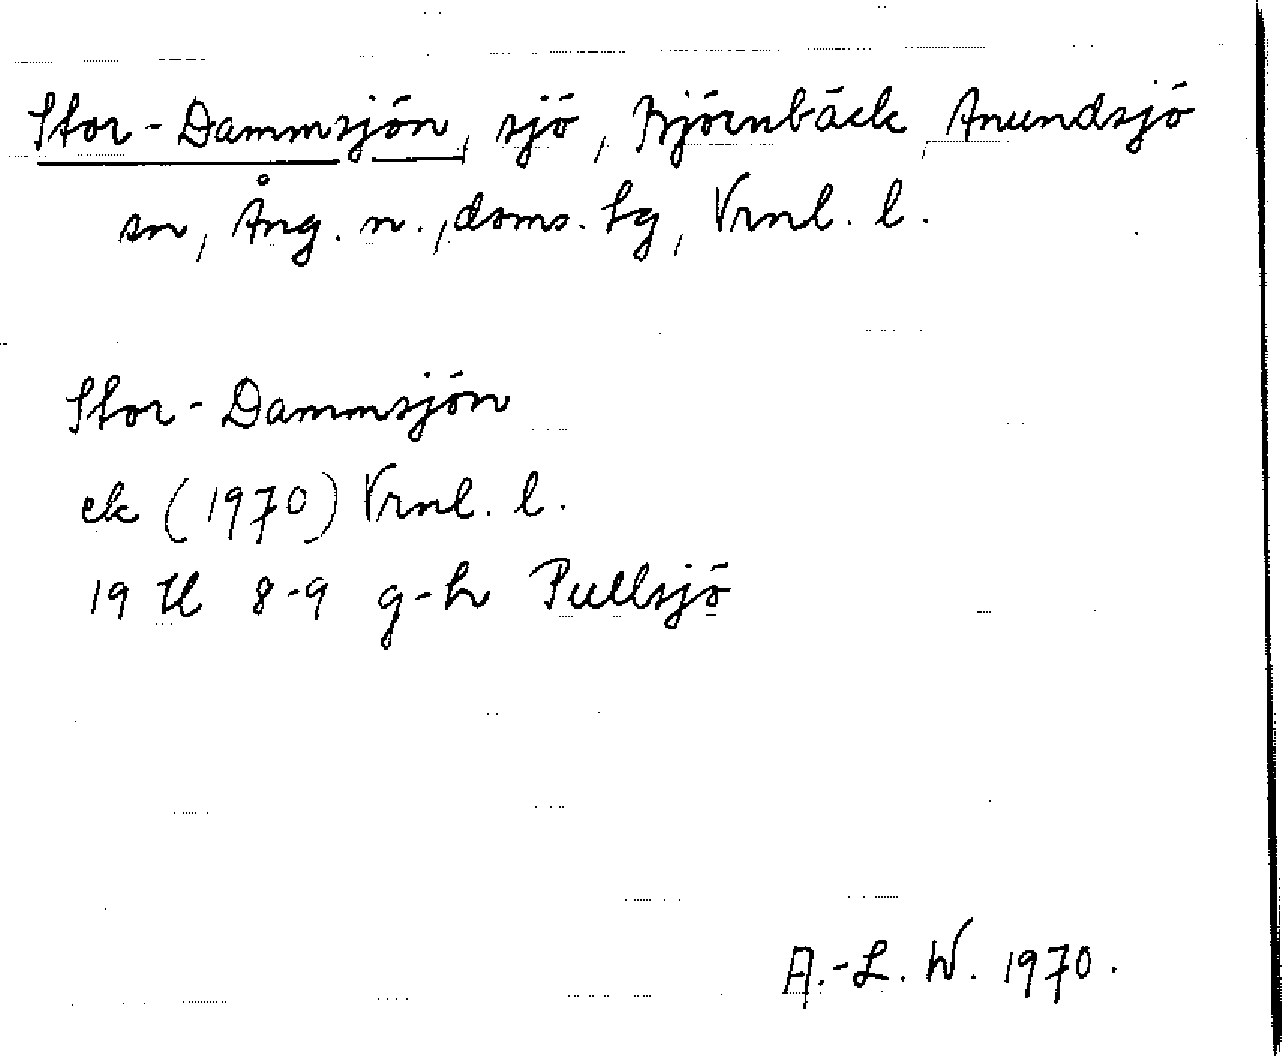 Stor-Dammsjön, sjö, Björnbäck, Anundsjö
sn, Ång. n., doms. hg, Vrnl. l.
Stor-Dammsjön
ek (1970) Vrnl. l.
19 H 8-9 g-h Pullsjö
A.-L. W. 1970.